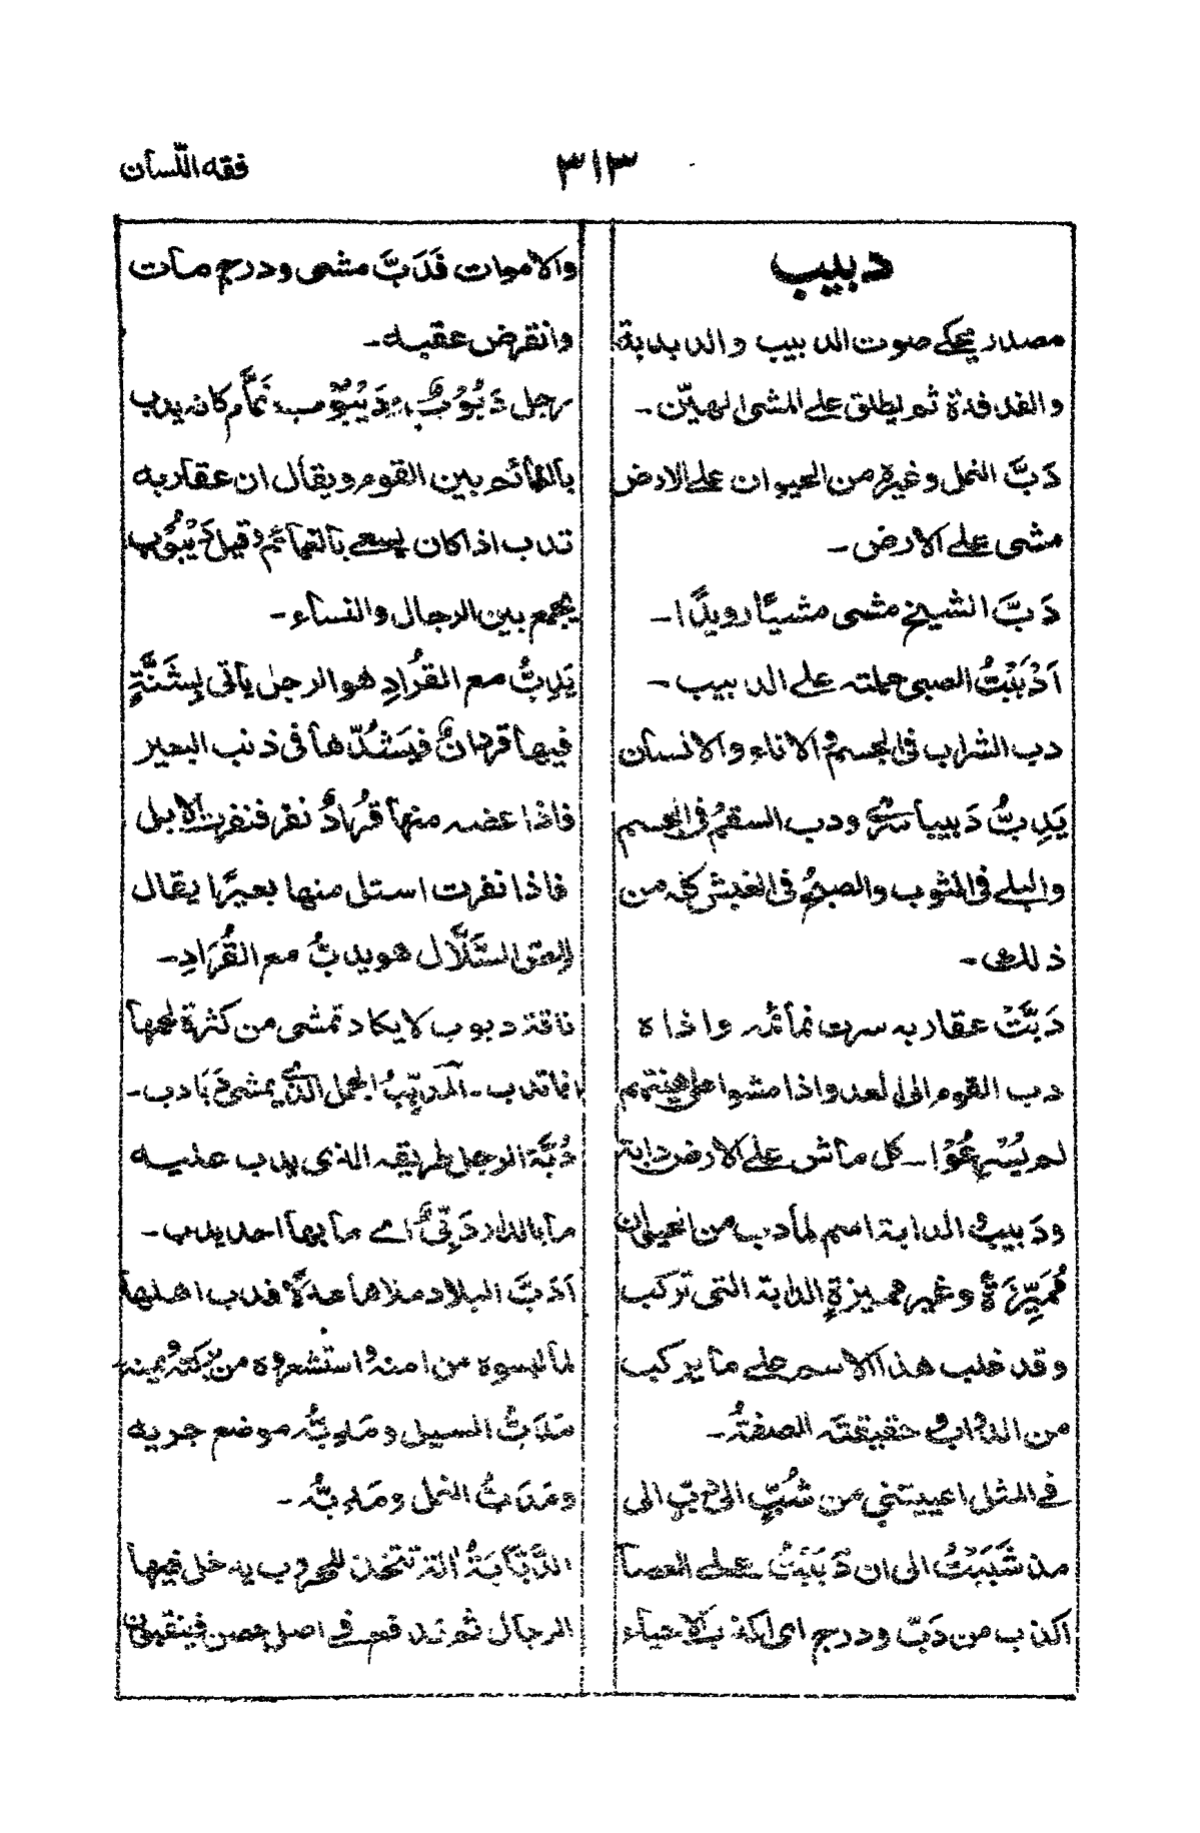 فقه اللّسان
٣١٣
دبيب
مصدر يحكے صوت الدبيب والدبدبة
والفدفدة ثم يطلق علے المشى الهيّن ـ
دَبَّ النمل وغيرة من الحيوان علے الارض
مشى علے الارض ـ
دَبَّ الشيخ مشى مشيًا رويدًا ـ
اَدْبَبْتُ الصبى حملته علے الدبيب ـ
دب الشراب فى الجسم و الاناء و الانسان
يَدِبُّ دَبيبا سرے ودب السقمُ فى الجسم
والبلے فى الثوب والصبح فى الغبش كله من
ذلك ـ
دَبَّتْ عقاربه سرت نمائمه واذاه
دب القوم الى العدو اذا مشوا على هينتهم
لم يُسْرِعُوْا ـ كل ماش علے الارض دابة
ودَبيب و الدابة اسم لما دب من الحيوان
مُمَيِّزَةً وغير مميزةٍ الدابة التى تركب
وقد غلب هذا الاسم علے ما يركب
من الدواب و حقيقته الصفةُ ـ
فے المثل اعييتنى من شُبٍّ الى دُبٍّ الى
مذ شَبَبْتُ الى ان دَبَبْتُ علے العصا
اكذب من دَبّ ودرج اى اكذب الاحياء
والاموات فَدَبَّ مشى ودرج مات
وانقرض عقبه ـ
رجل دَبُوْبٌ و دَيْبُوْب نَمَّام كانه يدب
بالنمائم بين القوم ويقال ان عقاربه
تدب اذا كان يسعے بالنمائم وقيل دَيْبُوْب
يجمع بين الرجال والنساء ـ
يَدِبُّ مع القُرَادِ هو الرجل ياتى بِشَنَّةٍ
فيها قردانٌ فيَشُدّها فى ذنب البعير
فاذا عضه منها قُرادٌ نفر فنفرت الابل
فاذا نفرت استل منها بعيرًا يقال
للصّ السَّلَّال هو يدبُّ مع القُرَادِ ـ
ناقة دبوب لا يكاد تمشى من كثرة لحمها
انما تدب ـ المدبّبُ الجمل الذى يمشى دَبَادب ـ
دُبَّة الرجل طريقه الذى يدب عليه
ما بالدار دَبِّىٌّ اے ما بها احد يدب ـ
اَدَبَّ البلاد ملاها عدلًا فدب اهلها
لما لبسوه من امنه واستشعروه من بركته ويمنه
مَدَبُّ السيل ومَدِبُّه موضع جريه
ومَدَبُّ النمل ومَدِبُّه ـ
الدَّبَّابَةُ الة تتخذ للحروب يدخل فيها
الرجال ثم تدفع فے اصل حصن فينقبون